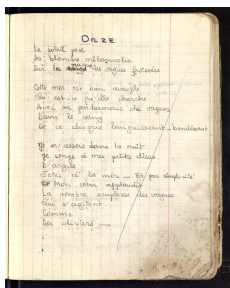 ONZE
Le soleil pose
Sa blanche mélancolie
Sur la des vagues froissées
Cette mer est bien aimable
Qu'est-ce qu'elle cherche
Avec sa gendarmerie de vagues
Dans le sang
Et ce disque languissant _ bondissant
Je m'assois dans la nuit
Je songe à mes petits dieux
D'argile
Jetés à la mer _ Et par simplicité
Mon cœur applaudit
La sombre souplesse des vagues
Qui s'agitent
Comme
Des oliviers